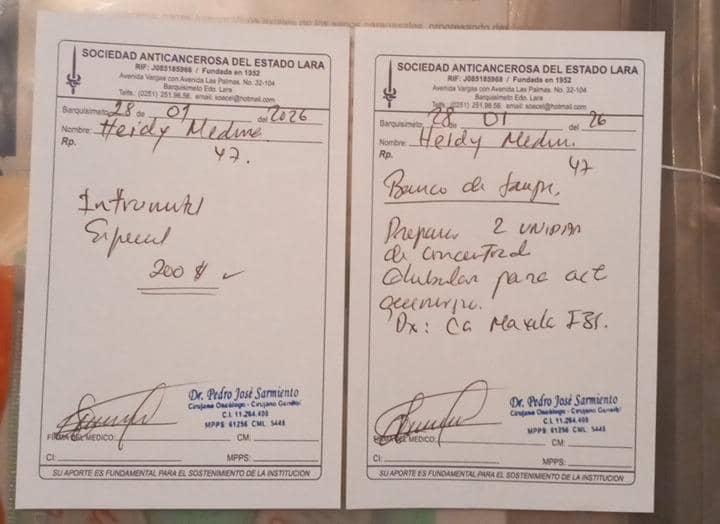 SOCIEDAD ANTICANCEROSA DEL ESTADO LARA
RIF: J085185968 / Fundada en 1952
Avenida Vargas con Avenida Las Palmas. No. 32-104
Barquisimeto Edo. Lara
Telfs. (0251) 251.96.56. email: soacel@hotmail.com
Barquisimeto 28 de 01 del 2026
Nombre: Heidy Medina
Rp. 47.
Especial
200 $
Dr. Pedro José Sarmiento
Cirujano Oncólogo - Cirujano General
C.I. 11.264.408
MPPS 61256 CML 5448
FIRMA DEL MEDICO: CM:
CI: MPPS:
SU APORTE ES FUNDAMENTAL PARA EL SOSTENIMIENTO DE LA INSTITUCION
SOCIEDAD ANTICANCEROSA DEL ESTADO LARA
RIF: J085185968 / Fundada en 1952
Avenida Vargas con Avenida Las Palmas. No. 32-104
Barquisimeto Edo. Lara
Telfs. (0251) 251.96.56. email: soacel@hotmail.com
Barquisimeto 28 de 01 del 26
Nombre: Heidy Medin.
Rp. 47
Banco de
Preparar 2 UNIDAD
de concentrad
para act
Dx: Ca
Dr. Pedro José Sarmiento
Cirujano Oncólogo - Cirujano General
C.I. 11.264.408
MPPS 61256 CML 5448
MEDICO: CM:
CI: MPPS:
SU APORTE ES FUNDAMENTAL PARA EL SOSTENIMIENTO DE LA INSTITUCION